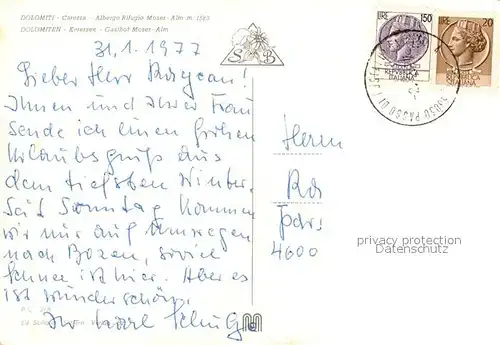 DOLOMITI - Carezza - Albergo Rifugio Moser-Alm m. 1583
DOLOMITEN - Karersee - Gasthof Moser-Alm
S B
31.1.1977
Lieber Herr
Ihnen und Ihrer Frau
sende ich einen frohen
Urlaubsgruß aus
dem tiefsten Winter.
Seit Sonntag kommen
wir nur auf Umwegen
nach Bozen, soviel
Schnee ist hier. Aber es
ist wunderschön.
Ihr Karl
Herrn
Ra
Pdrs
4600
LIRE 150
REPUBBLICA
ITALIANA
LIRE 20
REPUBBLICA
ITALIANA
privacy protection
Datenschutz